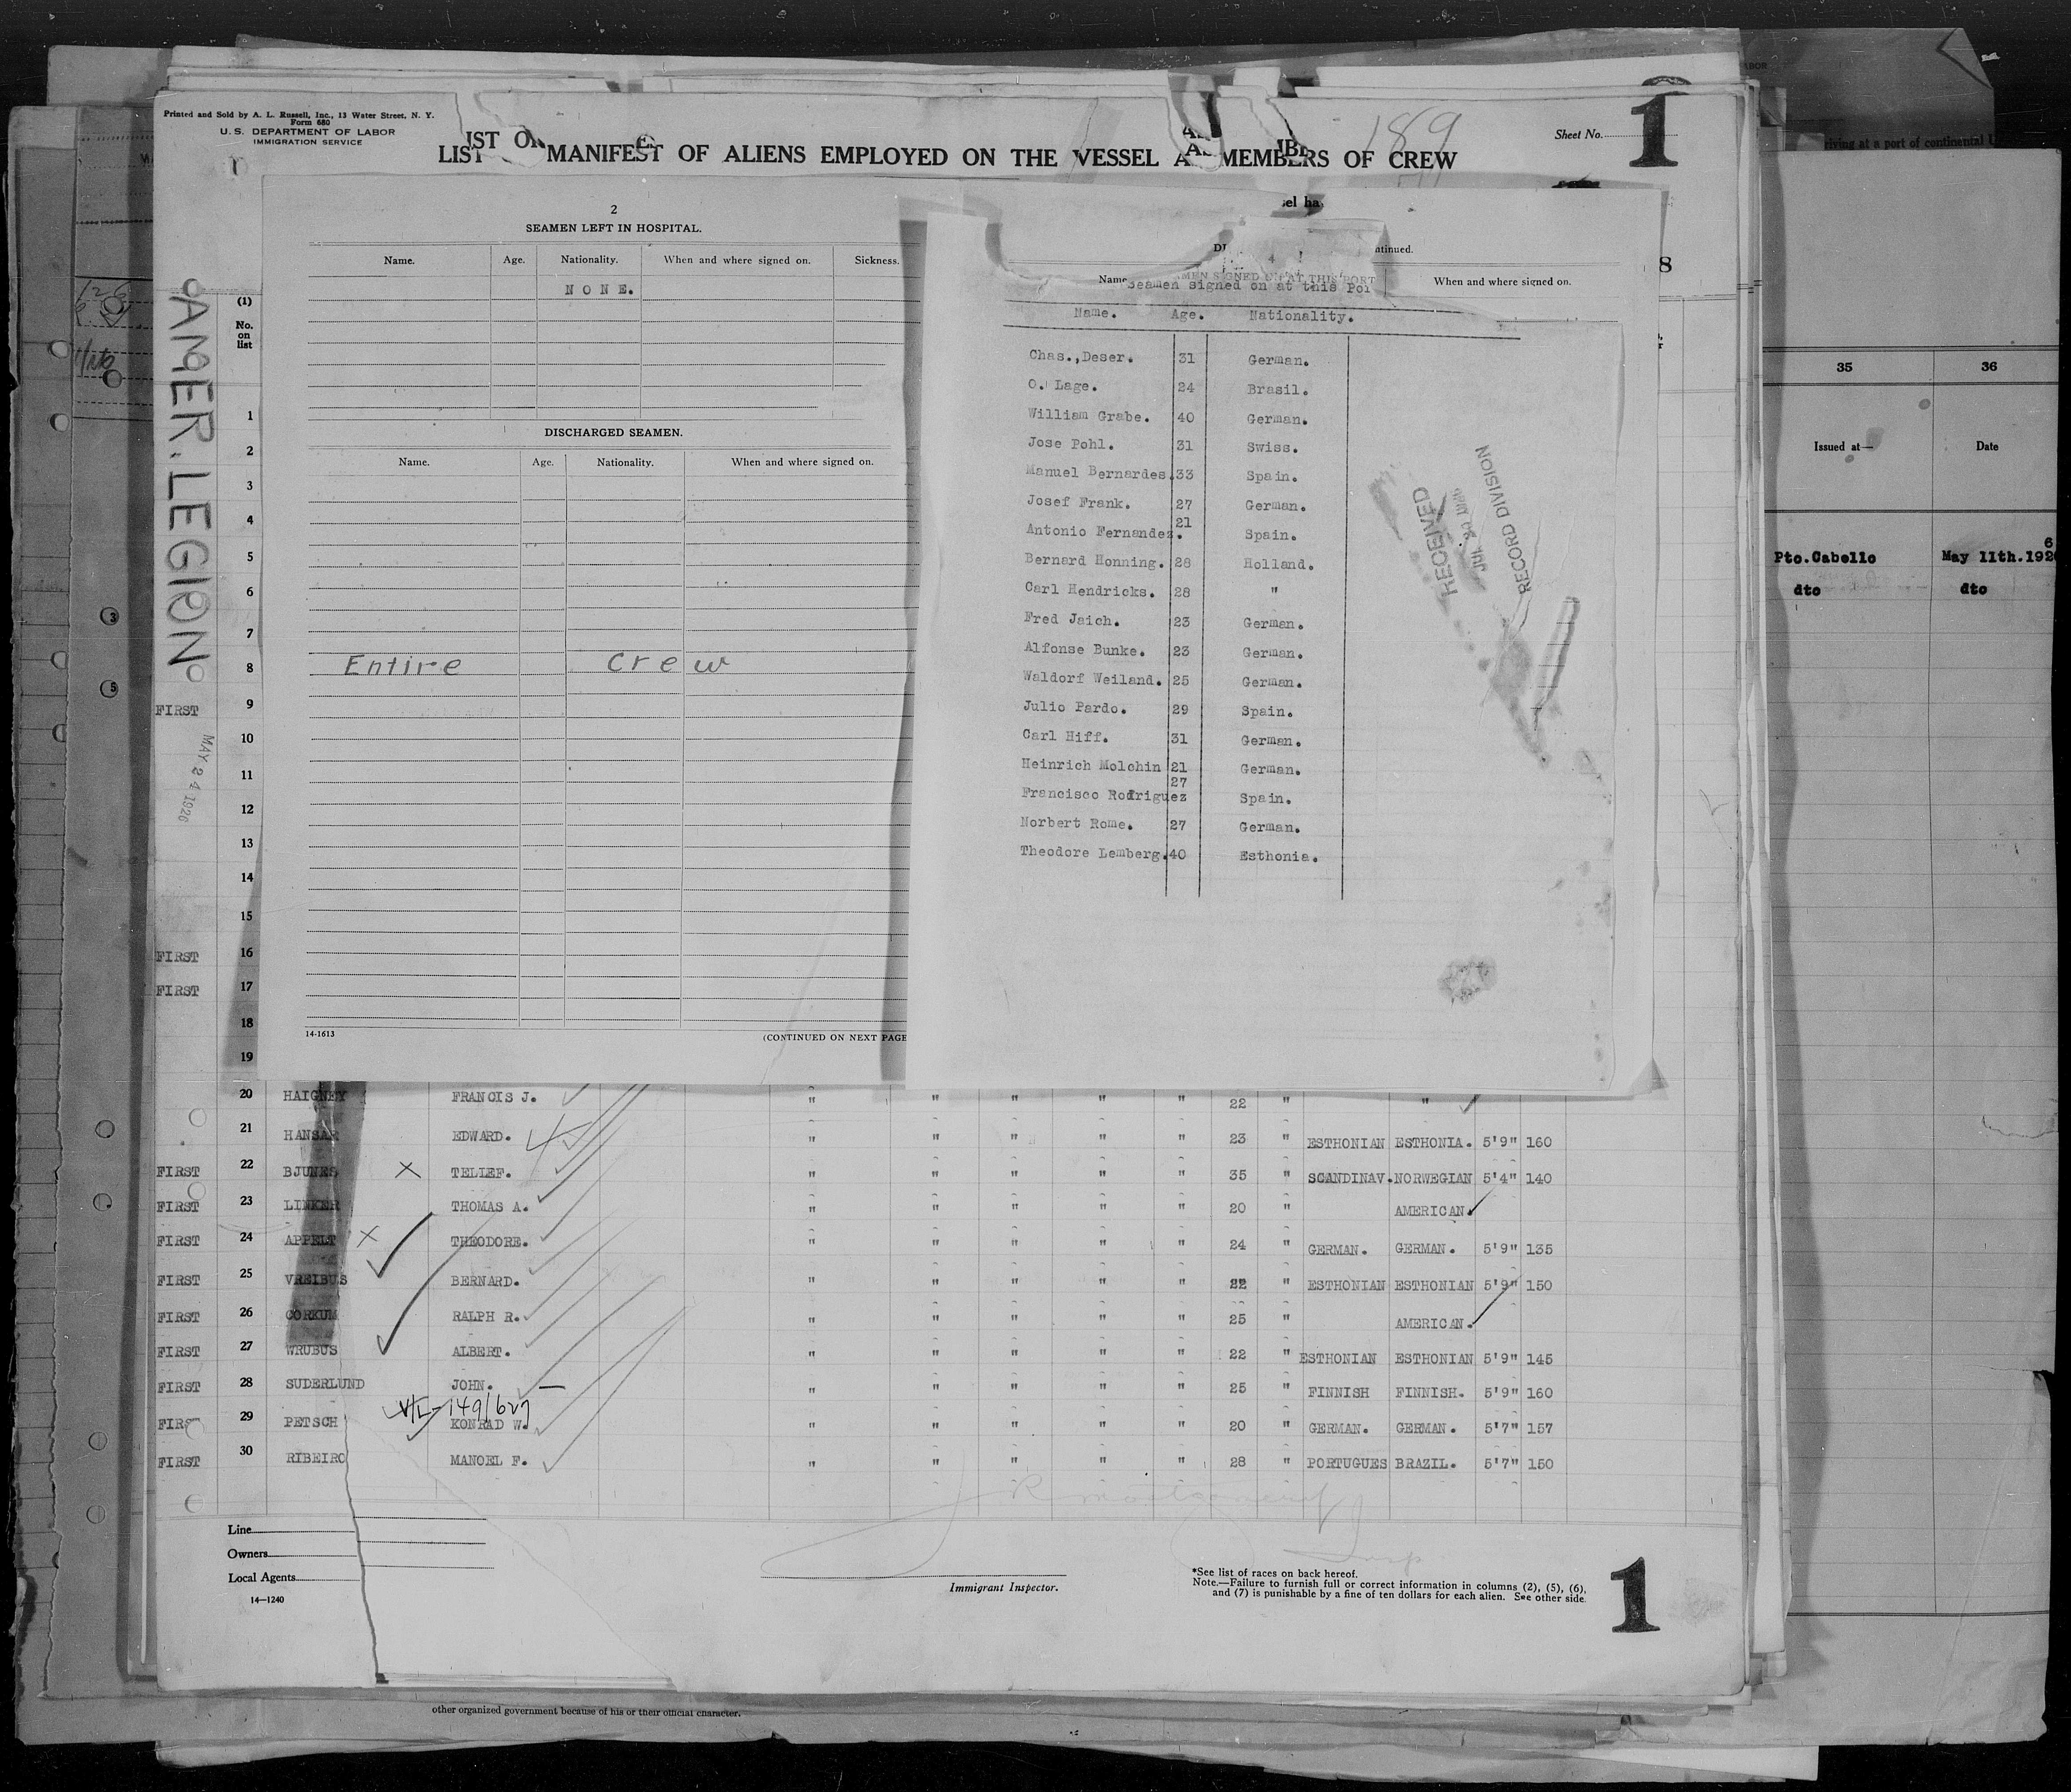 Printed and Sold by A. L. Russell, Inc., 13 Water Street, N. Y.
Form 680
U. S. DEPARTMENT OF LABOR
IMMIGRATION SERVICE
LIST MANIFEST OF ALIENS EMPLOYED ON THE VESSEL AS MEMBERS OF CREW
189
Sheet No.
1
riving at a port of continental U
AMER. LEGION
MAY 24 1926
(1)
No. on list
2
SEAMEN LEFT IN HOSPITAL.
Name. Age. Nationality. When and where signed on. Sickness.
NONE.
DISCHARGED SEAMEN.
Name. Age. Nationality. When and where signed on.
Entire crew
14-1613
(CONTINUED ON NEXT PAGE
sel ha
ntinued.
4
Name When and where signed on.
MEN SIGNED ON AT THIS PORT
Seamen signed on at this Por
Name. Age. Nationality.
Chas.,Deser. 31 German.
O. Lage. 24 Brasil.
William Grabe. 40 German.
Jose Pohl. 31 Swiss.
Manuel Bernardes. 33 Spain.
Josef Frank. 27 German.
Antonio Fernandez. 21 Spain.
Bernard Honning. 28 Holland.
Carl Hendricks. 28 "
Fred Jaich. 23 German.
Alfonse Bunke. 23 German.
Waldorf Weiland. 25 German.
Julio Pardo. 29 Spain.
Carl Hiff. 31 German.
Heinrich Molchin 21 German.
Francisco Rodriguez 27 Spain.
Norbert Rome. 27 German.
Theodore Lemberg. 40 Esthonia.
RECEIVED
JUL
RECORD DIVISION
8
35 36
Issued at— Date
Pto.Cabello May 11th.1926
dto dto
1
2
3
4
5
6
7
8
FIRST 9
10
11
12
13
14
15
FIRST 16
FIRST 17
18
19
20 HAIGNEY FRANCIS J. " " " " " 22 " "
21 HANSAR EDWARD. " " " " " 23 " ESTHONIAN ESTHONIA. 5'9" 160
FIRST 22 BJUNES X TELLEF. " " " " " 35 " SCANDINAV. NORWEGIAN 5'4" 140
FIRST 23 LINKER THOMAS A. " " " " " 20 " AMERICAN
FIRST 24 APPELT X THEODORE. " " " " " 24 " GERMAN. GERMAN. 5'9" 135
FIRST 25 VREIBUS BERNARD. " " " " " 22 " ESTHONIAN ESTHONIAN 5'9" 150
FIRST 26 CORKUM RALPH R. " " " " " 25 " AMERICAN.
FIRST 27 WRUBUS ALBERT. " " " " " 22 " ESTHONIAN ESTHONIAN 5'9" 145
FIRST 28 SUDERLUND JOHN. " " " " " 25 " FINNISH FINNISH. 5'9" 160
FIRS 29 PETSCH KONRAD W. " " " " " 20 " GERMAN. GERMAN. 5'7" 157
FIRST 30 RIBEIRO MANOEL F. " " " " " 28 " PORTUGUES BRAZIL. 5'7" 150
Line
Owners
Local Agents
14—1240
Immigrant Inspector.
*See list of races on back hereof.
Note.—Failure to furnish full or correct information in columns (2), (5), (6),
and (7) is punishable by a fine of ten dollars for each alien. See other side.
1
other organized government because of his or their official character.